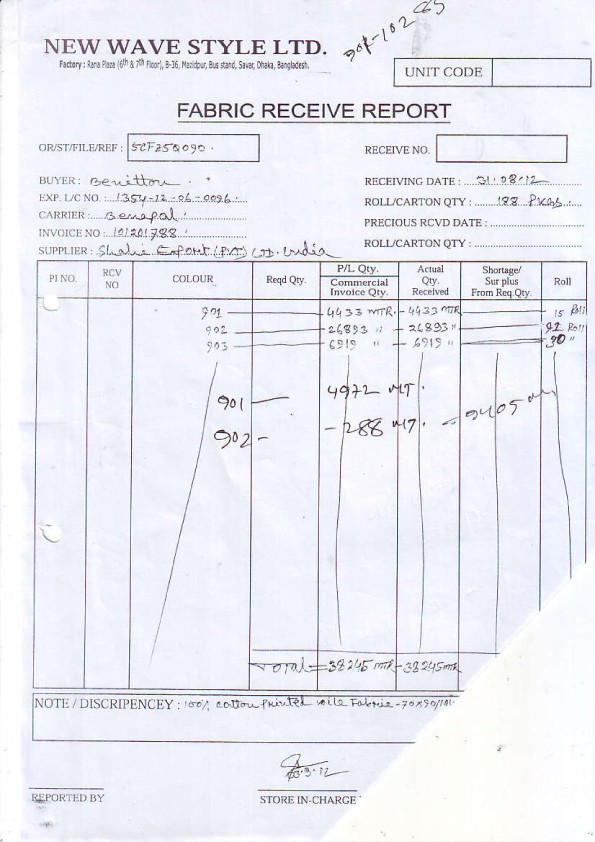 NEW WAVE STYLE LTD.
Factory : Rana Plaza (6th & 7th Floor), B-36, Mazidpur, Bus stand, Savar, Dhaka, Bangladesh.
UNIT CODE
FABRIC RECEIVE REPORT
OR/ST/FILE/REF : SCF25Q090.
RECEIVE NO.
BUYER : Benitton.
RECEIVING DATE : 31.08.12
EXP. L/C NO. : 1354-12-06-0096.
ROLL/CARTON QTY : 188 PKGS.
CARRIER : Benapal.
PRECIOUS RCVD DATE :
INVOICE NO : 101201788.
ROLL/CARTON QTY :
SUPPLIER : Shahi Export (PVT) LTD. India
PI NO. RCV NO COLOUR Reqd Qty. P/L Qty. Commercial Invoice Qty. Actual Qty. Received Shortage/ Sur plus From Req.Qty. Roll
901 4433 MTR. 4433 MTR 15 Roll
902 26893 " 26893 " Roll
903 6919 " 6919 " 90 "
901 — 4972 MT.
902 - - 288 MT.
Total = 38245 MTR - 38245 MTR
NOTE / DISCRIPENCEY : 100% cotton printed voile Fabric - 70x90/
REPORTED BY
STORE IN-CHARGE